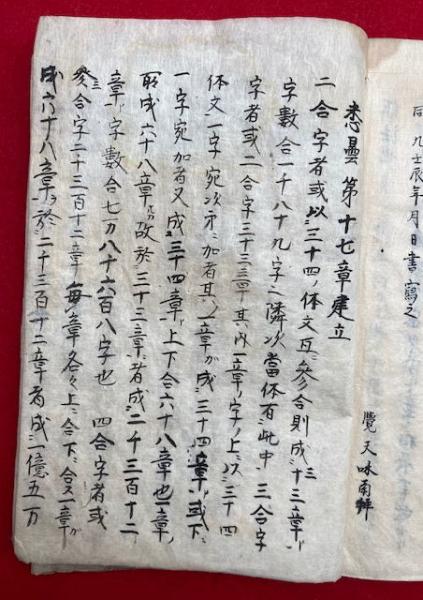 同九壬辰年月日書寫之
覺天味南解
悉曇第十七章建立
二合字者或以三十四ノ体文互ニ參合則成三十三章ヲ
字數合一千八十九字之隣次當体有ニ此中 三合字
字者或二合字三十三章其内一章ノ字ノ上ニ以三十四
体文一字宛次第ニ加者其一章ガ成三十四章ヲ或下ニ
一字宛加者又成三十四章ヲ上下合六十八章也一章ヲ
成六十八章ヲ故於三十三章者成二千三百十二
章ヲ字數合七万八千六百八字也 四合字者或
三合字二千三百十二章毎章各々上ニ合下ニ合又一章ガ
成六十八章ヲ於二千三百十二章者成一億五万